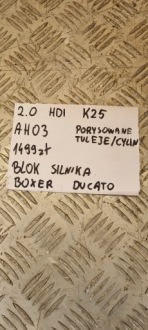 2.0 HDI K25
AH03 PORYSOWANE
TULEJE/CYLIN
1499zł
BLOK SILNIKA
BOXER DUCATO